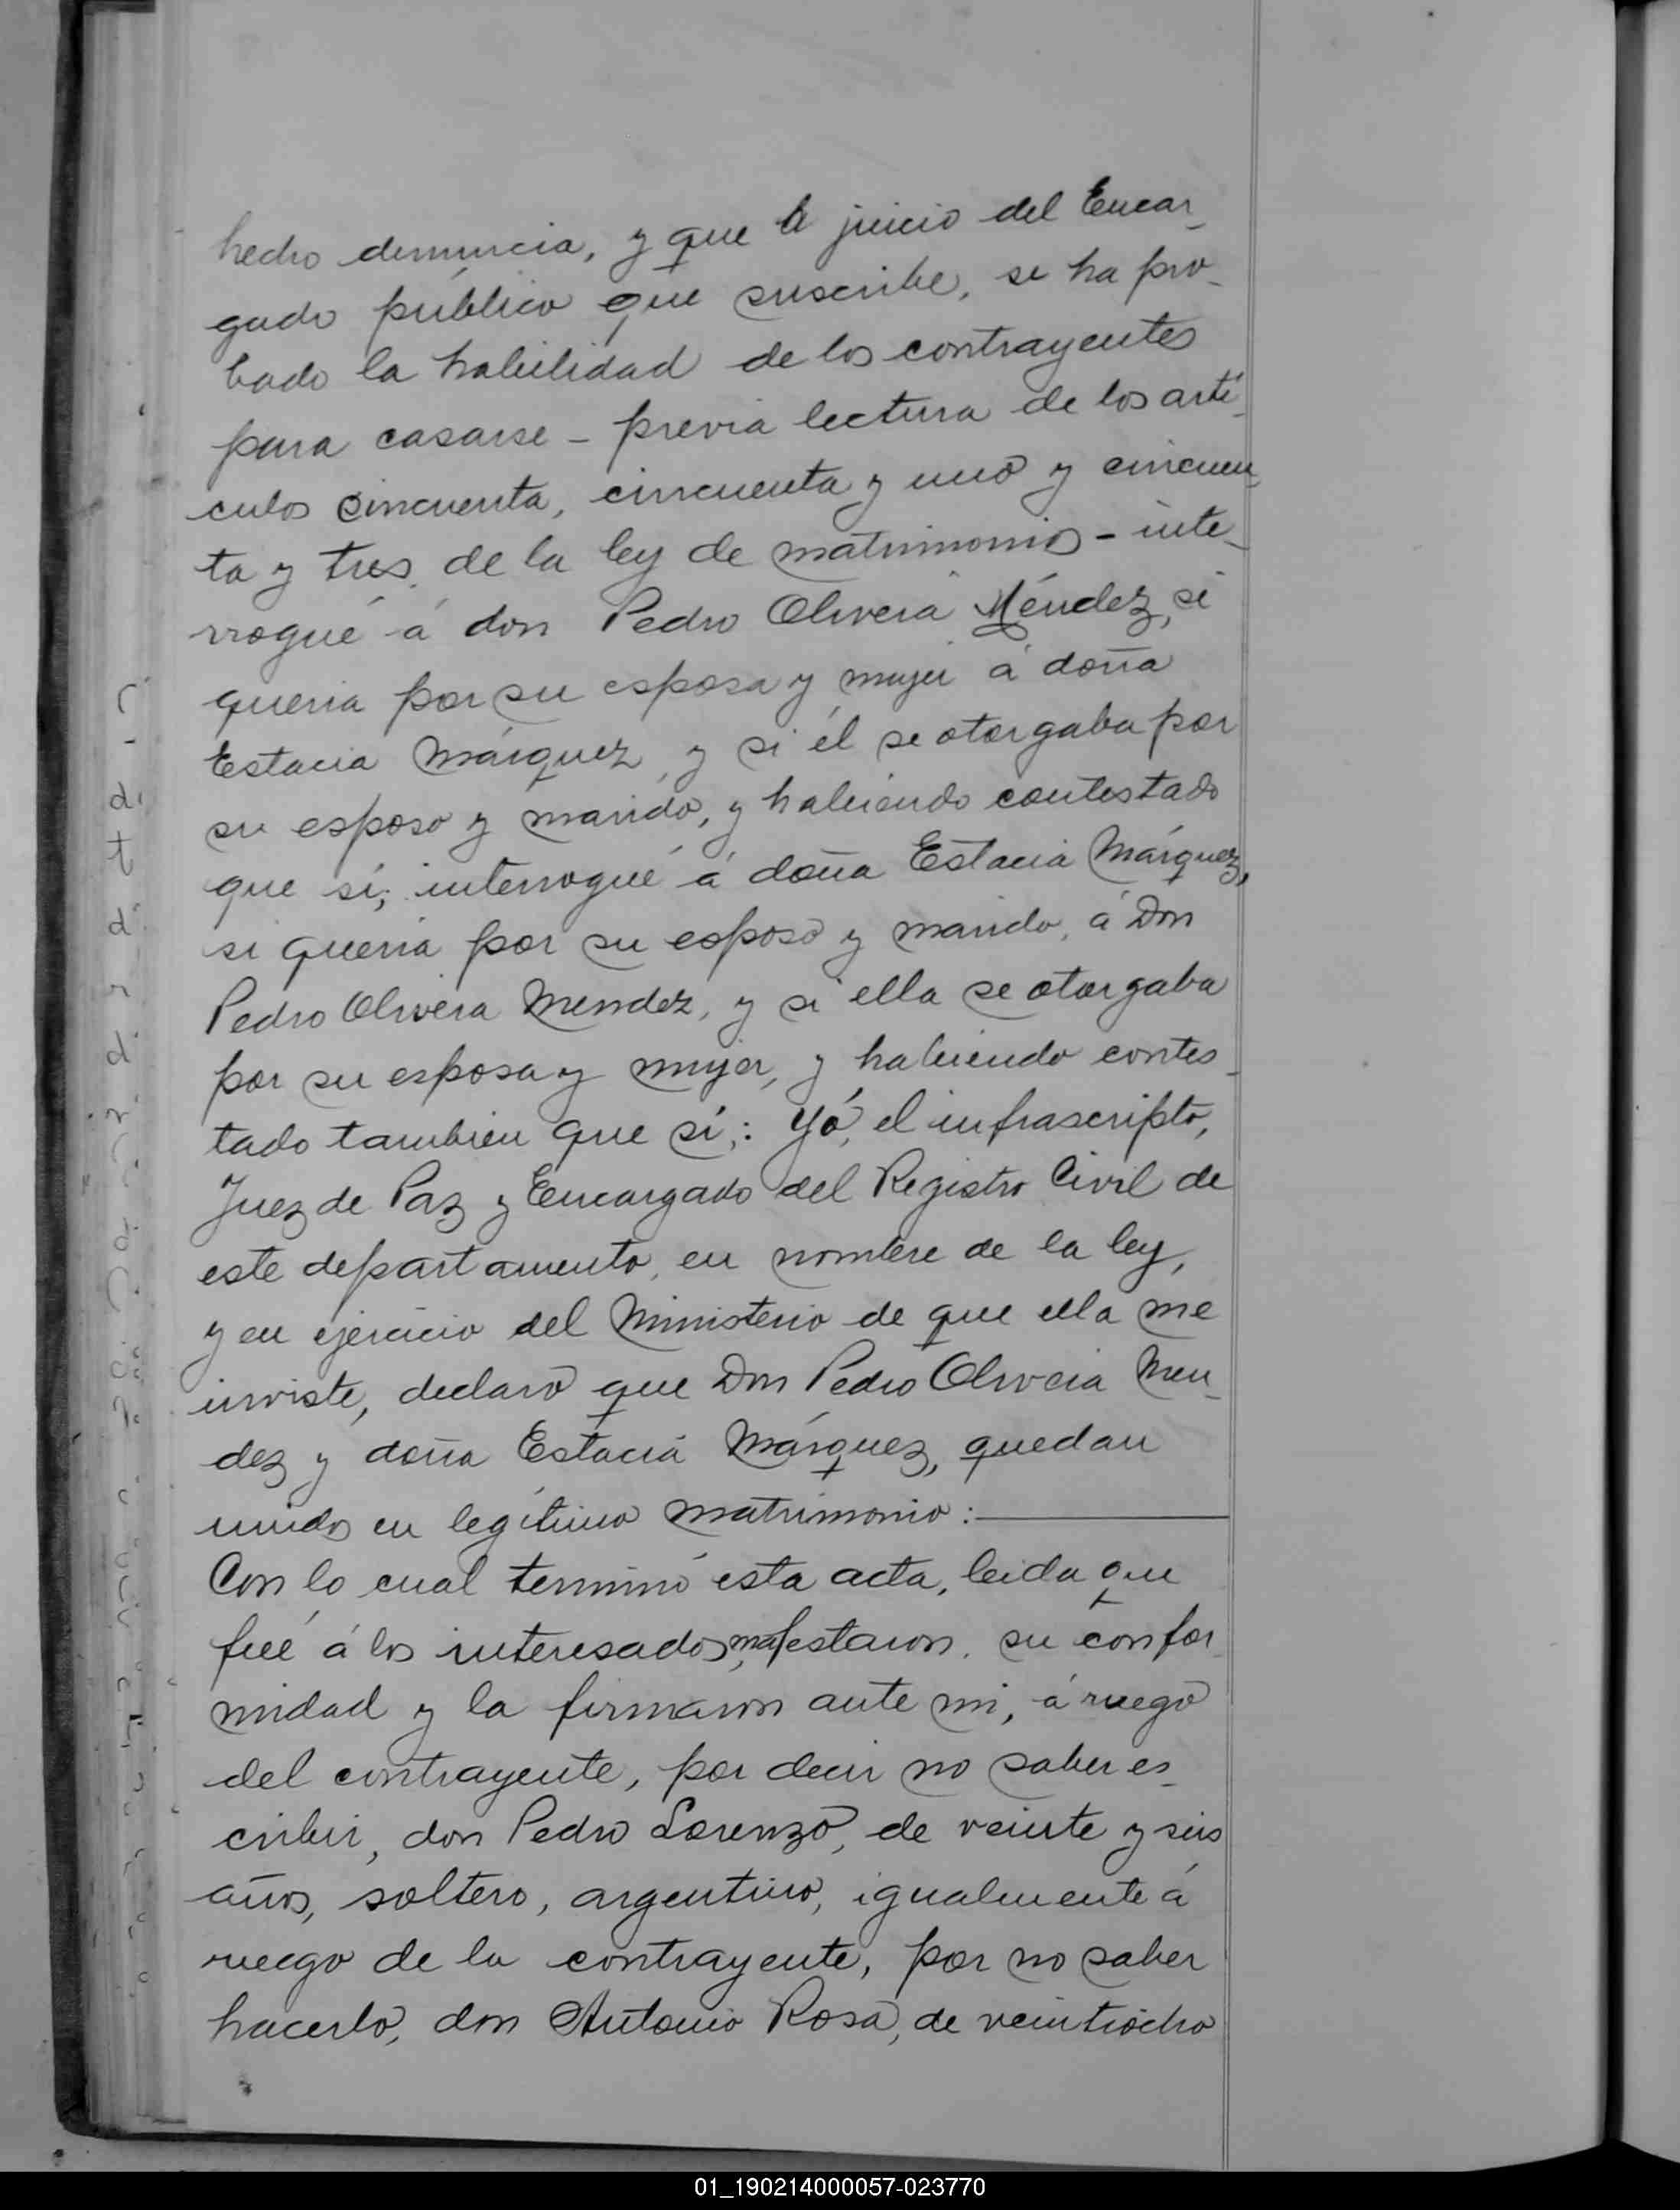 hecho denuncia, y que á juicio del Encar-
gado público que suscribe, se ha pro-
bado la habilidad de los contrayentes
para casarse - previa lectura de los artí-
culos cincuenta, cincuenta y uno y cincuen-
ta y tres de la ley de matrimonio - inte-
rrogué á don Pedro Olivera Méndez, si
queria por su esposa y mujer á doña
Estacia Márquez, y si él se otorgaba por
su esposo y marido, y habiendo contestado
que sí; interrogué á doña Estacia Márquez,
si queria por su esposo y marido, á Don
Pedro Olivera Mendez, y si ella se otorgaba
por su esposa y mujer, y habiendo contes-
tado tambien que sí; : Yó, el infrascripto,
Juez de Paz y Encargado del Registro Civil de
este departamento, en nombre de la ley,
y en ejercicio del Ministerio de que ella me
inviste, declaro que Don Pedro Olivera Men-
dez y doña Estacia Márquez, quedan
unidos en legítimo matrimonio :
Con lo cual terminó esta acta, leida que
fué á los interesados, mafestaron su confor-
midad y la firmaron ante mi, á ruego
del contrayente, por decir no saber es-
cribir, don Pedro Lorenzo, de veinte y seis
años, soltero, argentino, igualmente á
ruego de la contrayente, por no saber
hacerlo, don Antonio Rosa, de veintiocho
01_190214000057-023770